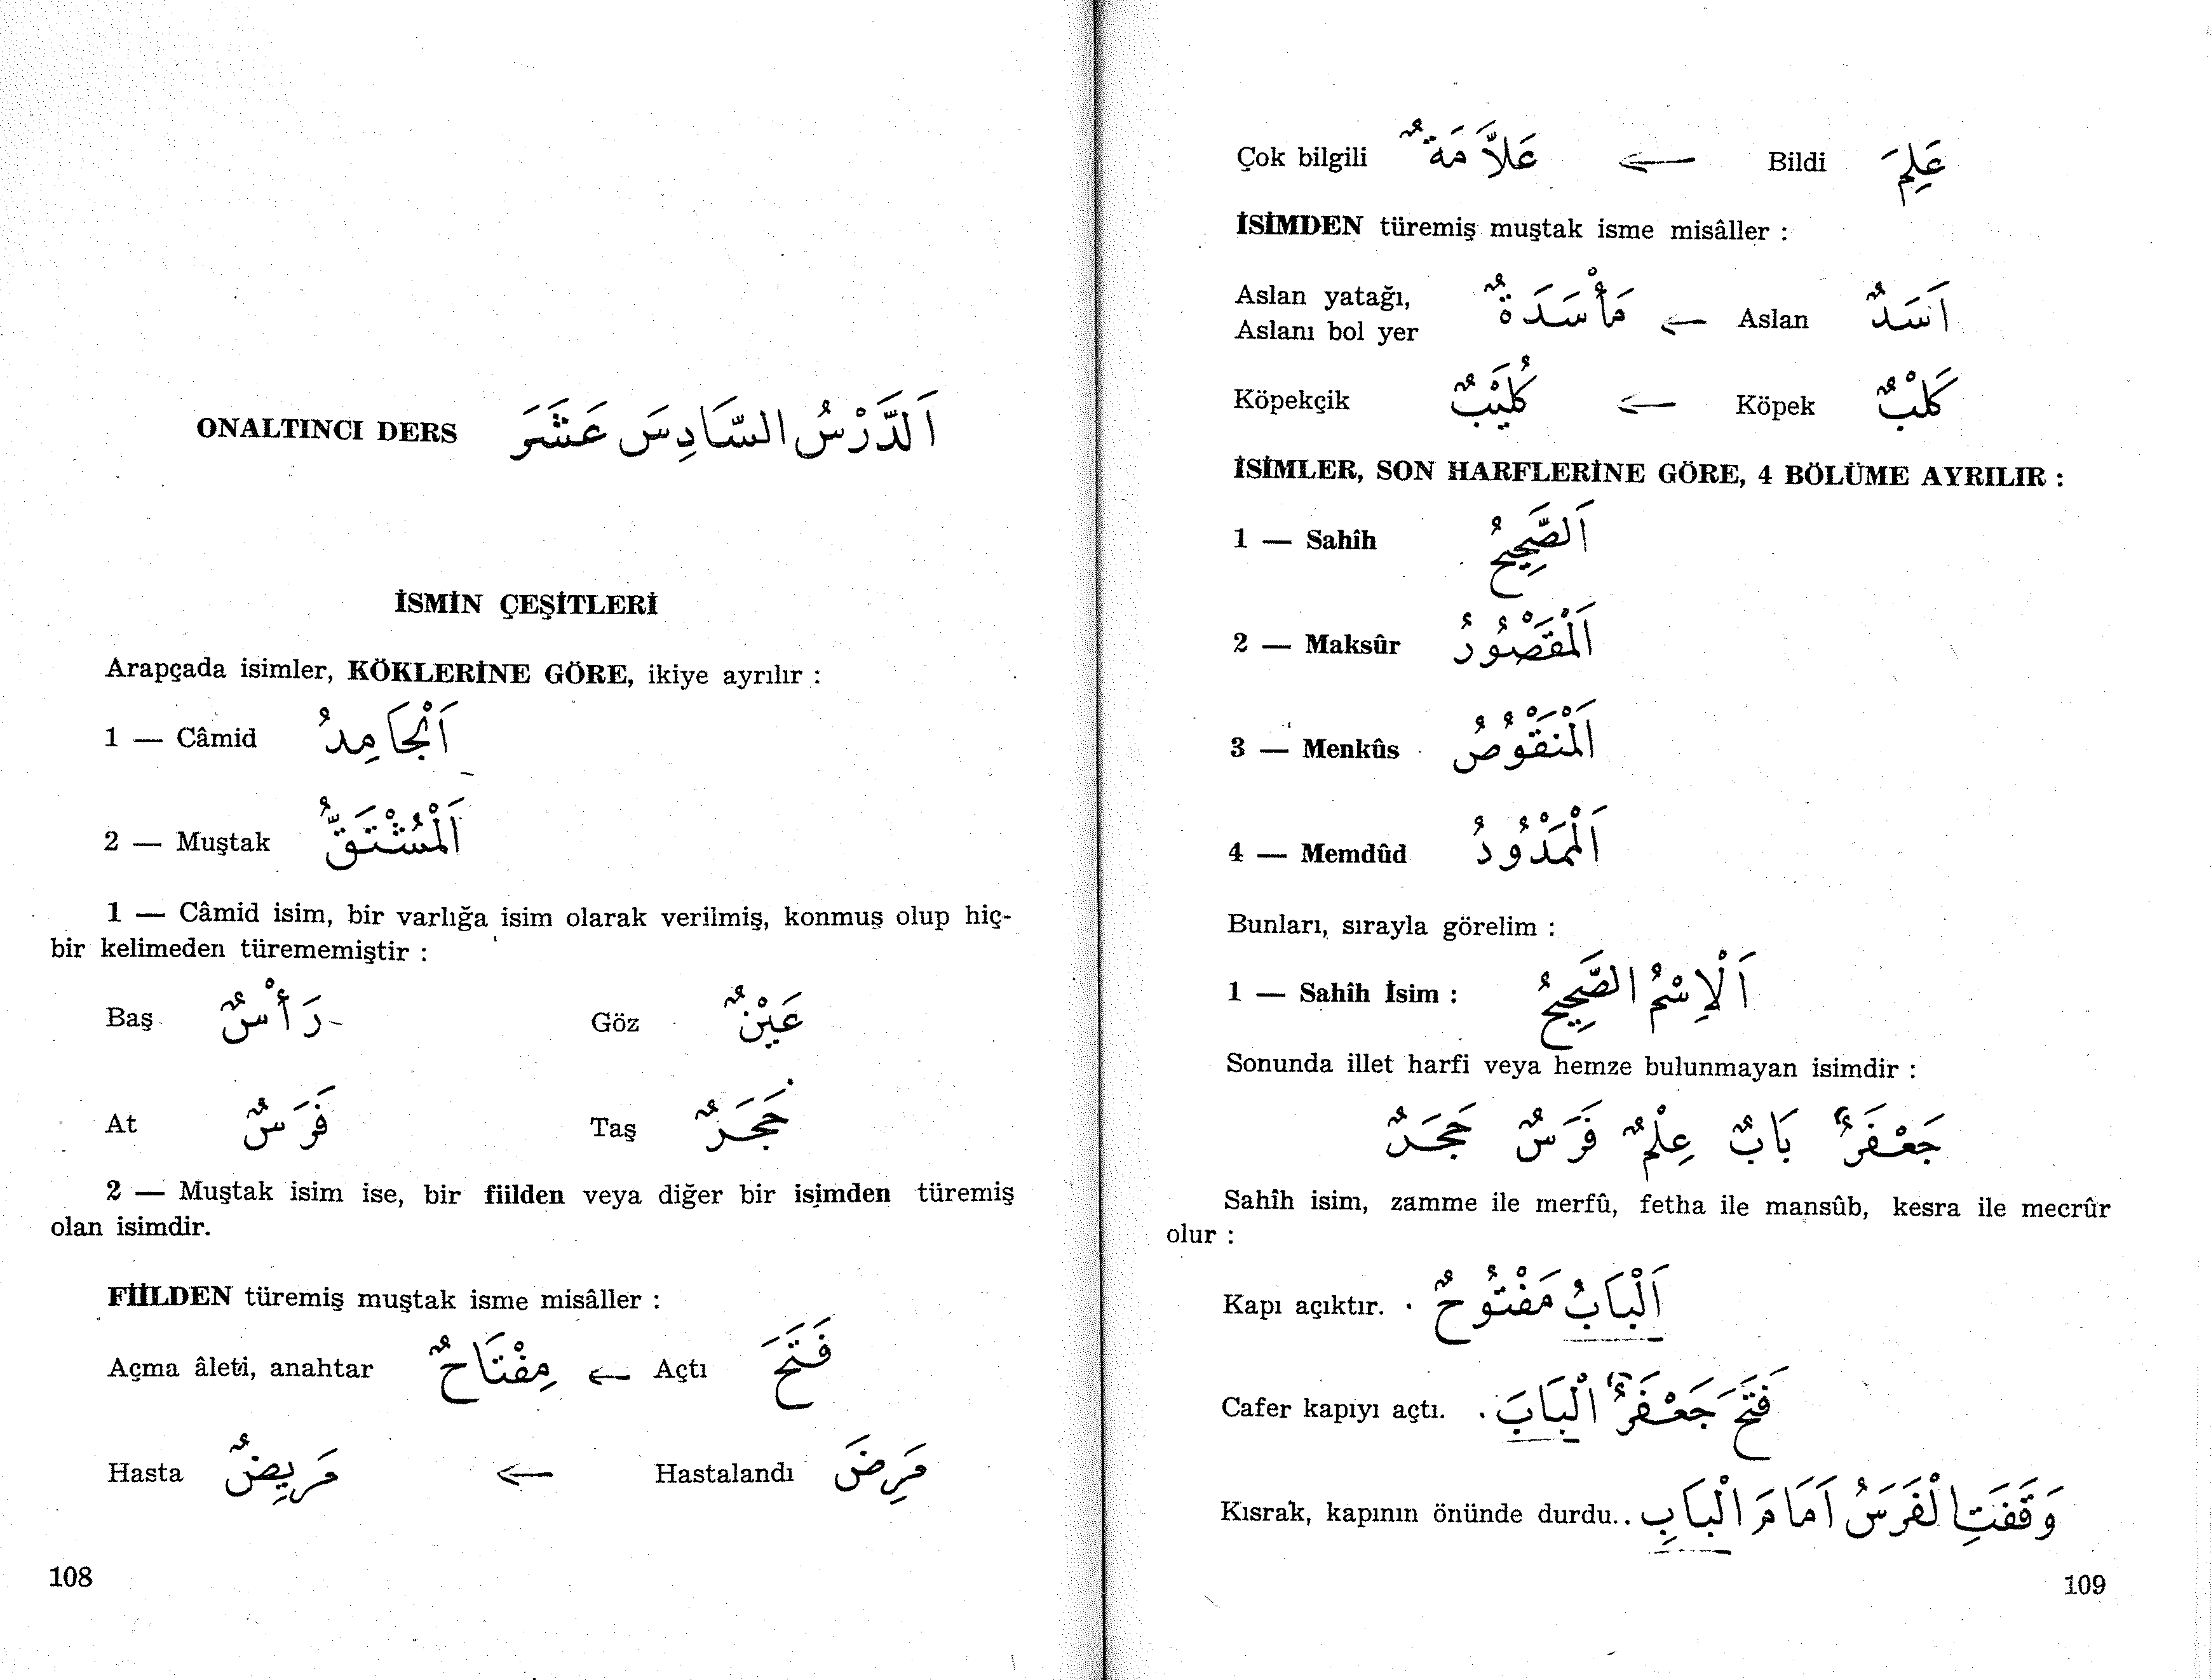 ONALTINCI DERS اَلدَّرْسُ السَّادِسَ عَشَرَ
İSMİN ÇEŞİTLERİ
Arapçada isimler, KÖKLERİNE GÖRE, ikiye ayrılır :
1 — Câmid اَلْجَامِدُ
2 — Muştak اَلْمُشْتَقُّ
1 — Câmid isim, bir varlığa isim olarak verilmiş, konmuş olup hiç-
bir kelimeden türememiştir :
Baş رَأْسٌ Göz عَيْنٌ
At فَرَسٌ Taş حَجَرٌ
2 — Muştak isim ise, bir fiilden veya diğer bir isimden türemiş
olan isimdir.
FİİLDEN türemiş muştak isme misâller :
Açma âleti, anahtar مِفْتَاحٌ ← Açtı فَتَحَ
Hasta مَرِيضٌ ← Hastalandı مَرِضَ
108
Çok bilgili عَلاَّمَةٌ ← Bildi عَلِمَ
İSİMDEN türemiş muştak isme misâller :
Aslan yatağı,
Aslanı bol yer مَأْسَدَةٌ ← Aslan اَسَدٌ
Köpekçik كُلَيْبٌ ← Köpek كَلْبٌ
İSİMLER, SON HARFLERİNE GÖRE, 4 BÖLÜME AYRILIR :
1 — Sahîh اَلصَّحِيحُ
2 — Maksûr اَلْمَقْصُورُ
3 — Menkûs اَلْمَنْقُوصُ
4 — Memdûd اَلْمَمْدُودُ
Bunları, sırayla görelim :
1 — Sahîh İsim : اَلْاِسْمُ الصَّحِيحُ
Sonunda illet harfi veya hemze bulunmayan isimdir :
جَعْفَرٌ بَابٌ عِلْمٌ فَرَسٌ حَجَرٌ
Sahîh isim, zamme ile merfû, fetha ile mansûb, kesra ile mecrûr
olur :
Kapı açıktır. اَلْبَابُ مَفْتُوحٌ .
Cafer kapıyı açtı. فَتَحَ جَعْفَرٌ الْبَابَ .
Kısrak, kapının önünde durdu. وَقَفَتِ الْفَرَسُ اَمَامَ الْبَابِ .
109